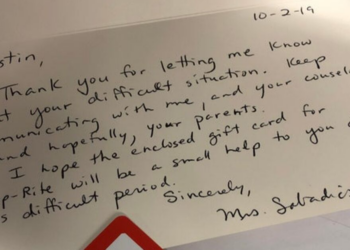 10-2-19
stin,
Thank you for letting me know
t your difficult situation. Keep
municating with me, and your counsel
and hopefully, your parents.
I hope the enclosed gift card for
P-Rite will be a small help to you
s difficult period.
Sincerely,
Mrs.